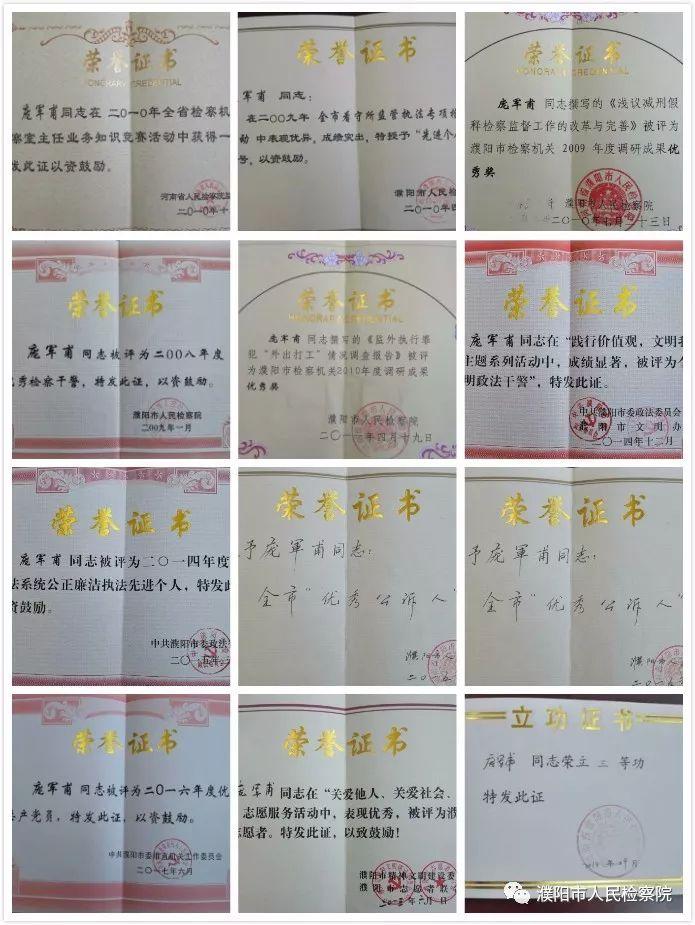 荣誉证书
HONORARY CREDENTIAL
庞军甫同志在二〇一〇年全省检察机
察室主任业务知识竞赛活动中获得一
发此证以资鼓励。
河南省人民检察院监
二〇一〇年十
荣誉证书
军甫 同志：
在二〇〇九年 全市看守所监管执法专项检
动 中表现优异，成绩突出，特授予“先进个人
号，以资鼓励。
濮阳市人民检
二〇一〇年四
荣誉证书
HONORARY CREDENTIAL
庞军甫 同志撰写的《浅议减刑假
释检察监督工作的改革与完善》被评为
濮阳市检察机关 2009 年度调研成果优
秀奖
濮阳市人民检察院
二〇一〇年七月二十三日
荣誉证书
庞军甫 同志被评为二〇〇八年度
优秀检察干警，特发此证，以资鼓励。
濮阳市人民检察院
二〇〇九年一月
荣誉证书
HONORARY CREDENTIAL
庞军甫 同志撰写的《监外执行罪
犯“外出打工”情况调查报告》被评
为濮阳市检察机关2010年度调研成果
优秀奖
濮阳市人民检察院
二〇一一年四月十九日
荣誉证书
庞军甫同志在“践行价值观，文明我
主题系列活动中，成绩显著，被评为全
明政法干警”，特发此证。
中共濮阳市委政法委员会
濮阳市文明办
二〇一四年十二月
荣誉证书
庞军甫 同志被评为二〇一四年度
法系统公正廉洁执法先进个人，特发此
资鼓励。
中共濮阳市委政法
二〇一五年
荣誉证书
予庞军甫同志：
全市“优秀公诉人”
濮阳市人
二〇一五
荣誉证书
予庞军甫同志：
全市“优秀公诉人”
濮阳市人
二〇一五
荣誉证书
庞军甫 同志被评为二〇一六年度优
共产党员，特发此证，以资鼓励。
中共濮阳市委市直机关工作委员会
二〇一七年六月
荣誉证书
庞军甫 同志在“关爱他人、关爱社会、
志愿服务活动中，表现优秀，被评为濮
志愿者。特发此证，以致鼓励！
濮阳市精神文明建设委
濮阳市志愿者联
二〇一五年六月 日
立功证书
庞军甫 同志荣立 三 等功
特发此证
濮阳市人民检察院